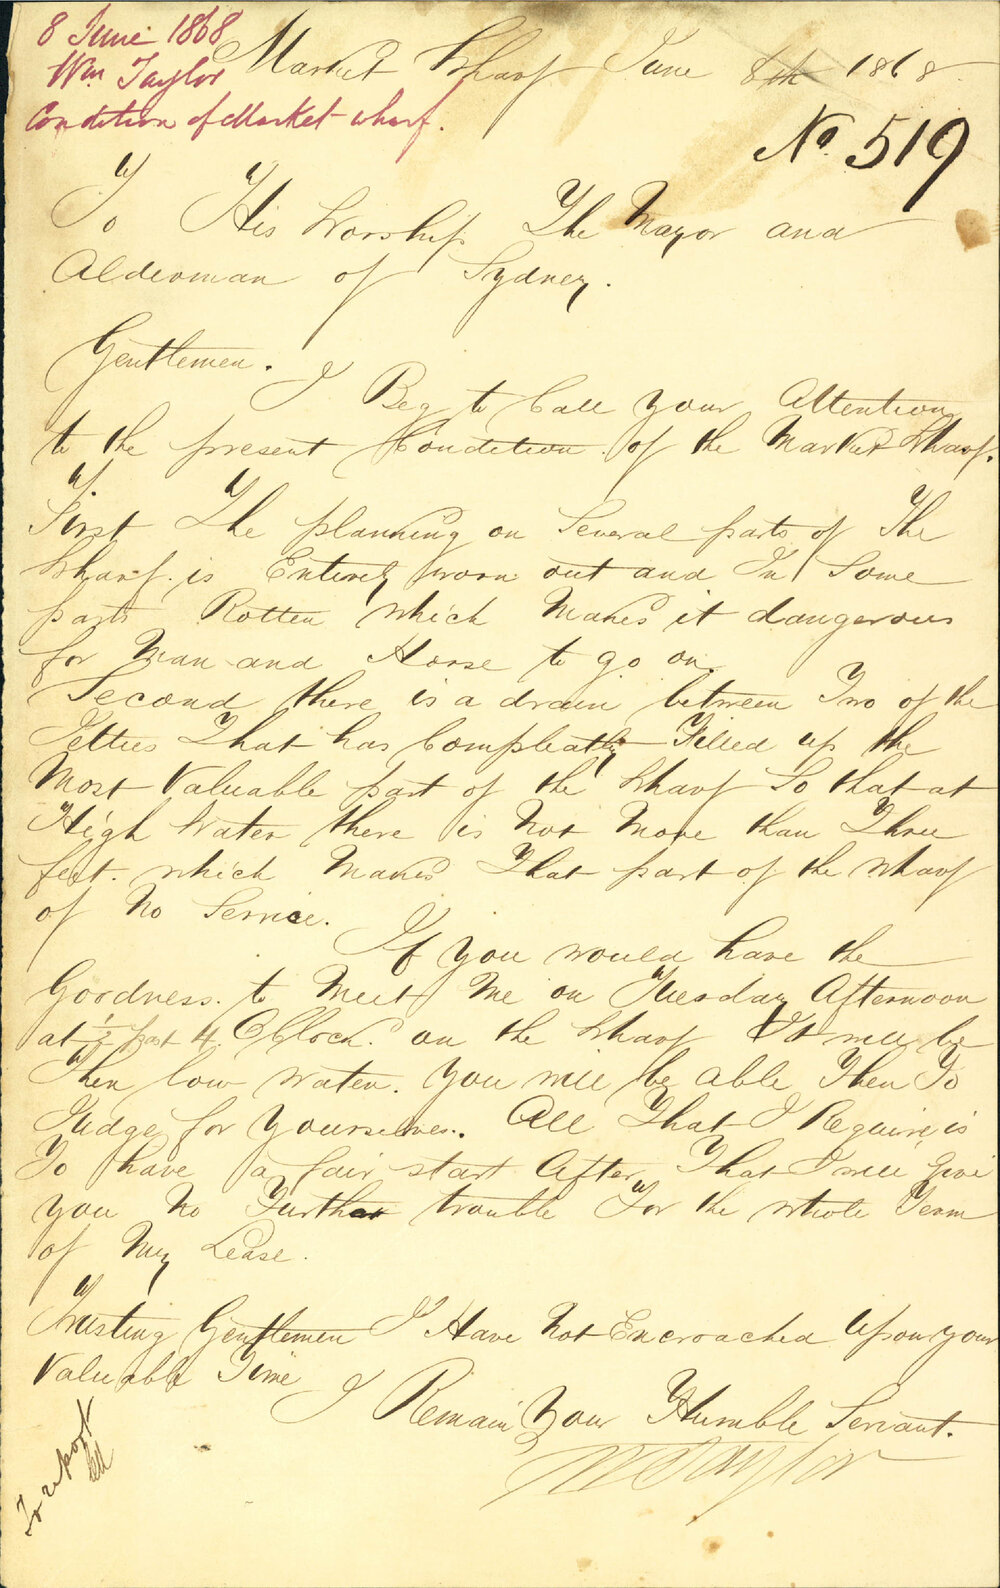 8 June 1868
Wm Taylor
Condition of Market wharf.
Market Wharf June 8th 1868
No. 519
To His Worship The Mayor and
Alderman of Sydney.
Gentlemen.
I Beg to Call your Attention
to the present Condition of the Market Wharf.
First The planking on Several parts of The
Wharf is Entirely worn out and In Some
parts Rotten which Makes it dangerous
for Man and Horse to go on.
Second there is a drain between Two of the
Jetties That has Compleatly Filled up the
Most Valuable part of the Wharf So that at
High Water there is Not More than Three
feet. which Makes That part of the wharf
of No Service.
If you would have the
Goodness. to Meet Me on Tuesday Afternoon
at ½ past 4 OClock. on the Wharf It will be
Then low water. you will be able Then To
Judge for yourselves. All That I Require is
To have a fair start After That I will give
you No Further trouble For the whole Term
of My Lease.
Trusting Gentlemen I Have Not Encroached Upon your
Valuable Time
I Remain Your Humble Servant.
W Taylor
To report